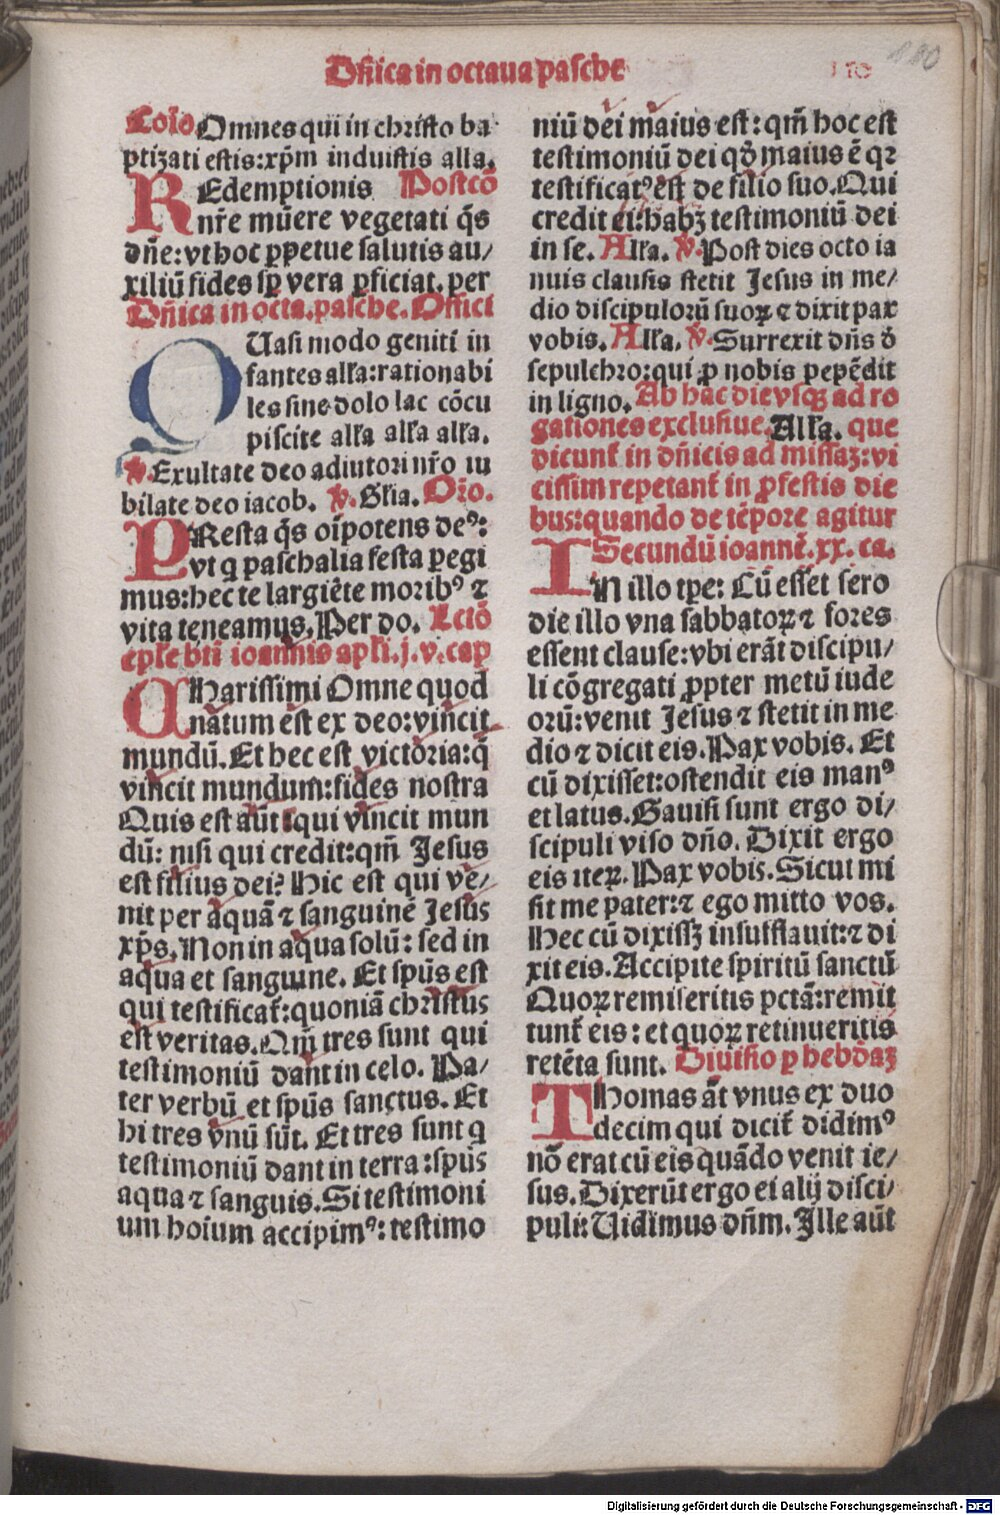 Dñica in octaua pasche
110
110
Cõio. Omnes qui in christo ba
ptizati estis: xp̄m induistis alla.
REdemptionis Postcō
nr̄e mūere vegetati q̄s
dn̄e: vt hoc ꝑpetue salutis au/
xiliū fides sꝑ vera ꝓficiat. per
Dn̄ica in octa. pasche. Offici
QUasi modo geniti in
fantes alľa: rationabi
les sine dolo lac cōcu
piscite alľa alľa alľa.
℣. Exultate deo adiutori nr̄o iu
bilate deo iacob. ℣. Gľia. Or̄o.
PResta q̄s oı̄potens deꝰ:
vt q paschalia festa ꝑegi
mus: hec te largiēte moribꝰ ⁊
vita teneamus. Per do. Lctō
epľe bti ioannis apľi. j. v. cap
CHarissimi Omne quod
natum est ex deo: vincit
mundū. Et hec est victoria: q̄
vincit mundum: fides nostra
Quis est aūt qui vincit mun
dū: nisi qui credit: qm̄ Jesus
est filius dei? Hic est qui ve/
nit per aquā ⁊ sanguinē Jesus
xp̄s. Non in aqua solū: sed in
aqua et sanguine. Et sp̄us est
qui testificat᷑: quoniā christus
est veritas. Qm̄ tres sunt qui
testimoniū dant in celo. Pa/
ter verbū et sp̄us sanctus. Et
hi tres vnū sūt. Et tres sunt q
testimoniū dant in terra: sp̄us
aqua ⁊ sanguis. Si testimoni
um hoı̄um accipimꝰ: testimo
niū dei maius est: qm̄ hoc est
testimoniū dei qd̄ maius ē qꝛ
testificatꝰ est de filio suo. Qui
credit ei: habꝫ testimoniū dei
in se. Alľa. ℣. Post dies octo ia
nuis clausis stetit Jesus in me/
dio discipulorū suoꝝ ⁊ dixit pax
vobis. Alľa. ℣. Surrexit dn̄s d̄
sepulchro: qui ꝓ nobis pepēdit
in ligno. Ab hac die vsqꝫ ad ro
gationes exclusiue. Alľa. que
dicunt᷑ in dn̄icis ad missaꝫ: vi
cissim repetant᷑ in ꝓfestis die
bus: quando de tēpore agitur
Secundū ioannē. xx. ca.
IN illo tꝑe: Cū esset sero
die illo vna sabbatoꝝ ⁊ fores
essent clause: vbi erāt discipu/
li cōgregati ꝓpter metū iude
orū: venit Jesus ⁊ stetit in me
dio ⁊ dicit eis. Pax vobis. Et
cū dixisset: ostendit eis manꝰ
et latus. Gauisi sunt ergo di/
scipuli viso dn̄o. Dixit ergo
eis iteꝝ. Pax vobis. Sicut mi
sit me pater: ⁊ ego mitto vos.
Hec cū dixissꝫ insufflauit: ⁊ di
xit eis. Accipite spiritū sanctū
Quoꝝ remiseritis pctā: remit
tunt᷑ eis: et quoꝝ retinueritis
retēta sunt. Diuisio ꝑ hebdaꝫ
THomas āt vnus ex duo
decim qui dicit᷑ didimꝰ
nō erat cū eis quādo venit ie/
sus. Dixerūt ergo ei alij disci/
puli: Uidimus dn̄m. Ille aūt
Digitalisierung gefördert durch die Deutsche Forschungsgemeinschaft - DFG